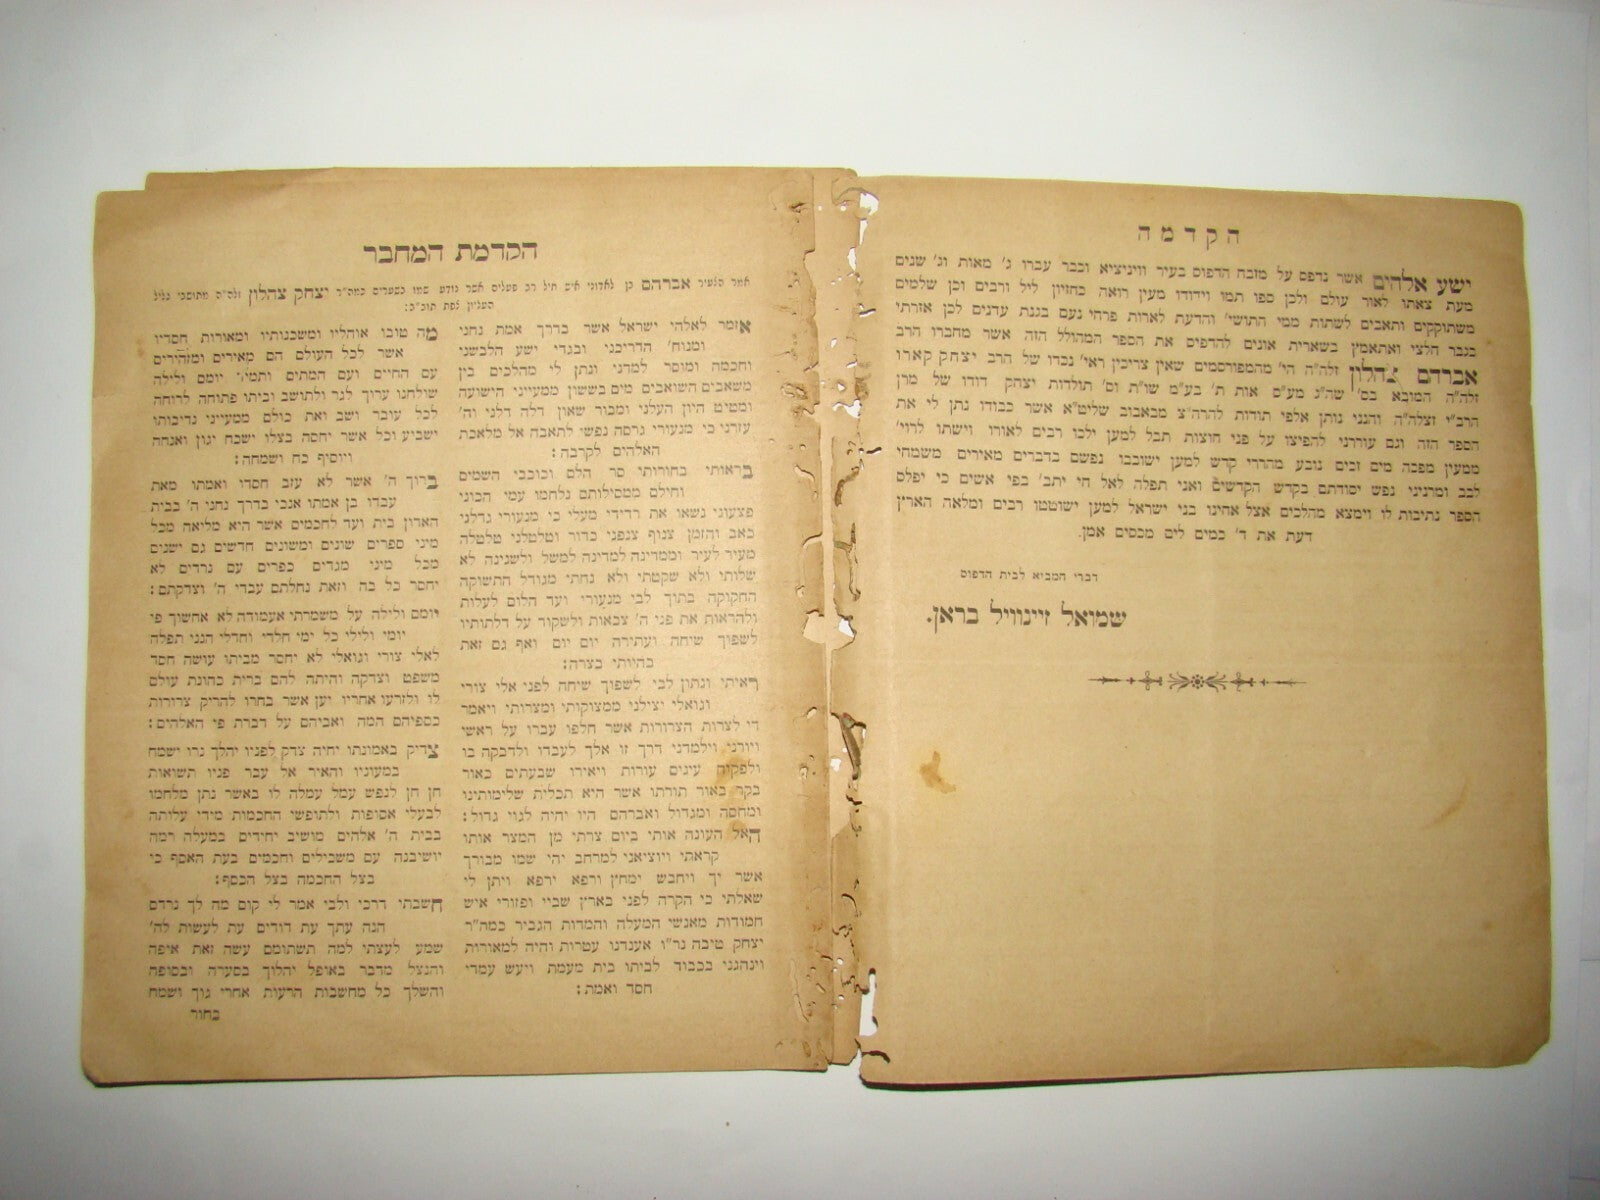 הקדמה
ישע אלהים אשר נדפס על מזבח הדפוס בעיר וויניציא וכבר עברו ג' מאות וג' שנים
מעת צאתו לאור עולם ולכן ספו תמו וידודו מעין רואה כחזיון ליל ורבים וכן שלמים
משתוקקים ותאבים לשתות ממי התושי' והדעת לארות פרחי נעם בגנת עדנים לכן אזרתי
כגבר חלצי ואתאמץ בשארית אונים להדפיס את הספר המהולל הזה אשר מחברו הרב
אברהם צהלון זלה"ה הי' מהמפורסמים שאין צריכין ראי' נכדו של הרב יצחק קארו
זלה"ה המובא בס' שה"ג מע"ס אות ת' בע"מ שו"ת וס' תולדות יצחק דודו של מרן
הרב"י זצלה"ה והנני נותן אלפי תודות להרה"צ מבאבוב שליט"א אשר כבודו נתן לי את
הספר הזה וגם עוררני להפיצו על פני חוצות תבל למען ילכו רבים לאורו וישתו לרוי'
ממעין מפכה מים זכים נובע מהררי קדש למען ישובבו נפשם בדברים מאירים משמחי
לבב ומרניני נפש יסודתם בקדש הקדשים ואני תפלה לאל חי יתב' בפי אשים כי יפלס
הספר נתיבות לו וימצא מהלכים אצל אחינו בני ישראל למען ישוטטו רבים ומלאה הארץ
דעת את ד' כמים לים מכסים אמן.
דברי המביא לבית הדפוס
שמואל זיינוויל בראן.
הקדמת המחבר
אמר הצעיר אברהם בן לאדוני איש חיל רב פעלים אשר נודע שמו בשערים כמה"ר יצחק צהלון זלה"ה מתושבי גליל
העליון צפת תוב"ב:
אזמר לאלהי ישראל אשר בדרך אמת נחני
ומנוח' הדריכני ובגדי ישע הלבשני
וחכמה ומוסר למדני ונתן לי מהלכים בין
משאבים השואבים מים בששון ממעייני הישועה
ומטיט היון העלני ומבור שאון דלה דלני וה'
עזרני כי מנעורי גרסה נפשי לתאבה אל מלאכת
האלהים לקרבה:
בראותי בחורותי סר הלם וכוכבי השמים
וחילם ממסילותם נלחמו עמי הכוני
פצעוני נשאו את רדידי מעלי כי מנעורי גדלני
כאב והזמן צנוף צנפני כדור וטלטלני טלטלה
מעיר לעיר וממדינה למדינה למשל ולשנינה לא
שלותי ולא שקטתי ולא נחתי מגודל התשוקה
החקוקה בתוך לבי מנעורי ועד הלום לעלות
ולהראות את פני ה' צבאות ולשקוד על דלתותיו
לשפוך שיחה ועתירה יום יום ואף גם זאת
בהיותי בצרה:
ראיתי ונתון לבי לשפוך שיחה לפני אלי צורי
וגואלי יצילני ממצוקותי ומצרותי ויאמר
די לצרות הצרורות אשר חלפו עברו על ראשי
ויורני וילמדני דרך זו אלך לעבדו ולדבקה בו
ולפקוח עינים עורות ויאירו שבעתים כאור
בקר באור תורתו אשר היא תכלית שלימותינו
ומחסה ומגדול ואברהם היו יהיה לגוי גדול:
האל העונה אותי ביום צרתי מן המצר אותו
קראתי ויוציאני למרחב יהי שמו מבורך
אשר יך ויחבש ימחץ ורפא ירפא ויתן לי
שאלתי כי הקרה לפני בארץ שביי ופזורי איש
חמודות מאנשי המעלה והמדות הגביר כמה"ר
יצחק טיבה נר"ו אענדנו עטרות והיה למאורות
וינהגני בכבוד לביתו בית מעמת ויעש עמדי
חסד ואמת:
מה טובו אוהליו ומשכנותיו ומאורות חסדיו
אשר לכל העולם הם מאירים ומזהירים
עם החיים ועם המתים ותמיד יומם ולילה
שולחנו ערוך לגר ולתושב וביתו פתוחה לרוחה
לכל עובר ושב ואת כולם ממעייני נדיבותו
ישביע וכל אשר יחסה בצלו ישכח יגון ואנחה
ויוסיף כח ושמחה:
ברוך ה' אשר לא עזב חסדו ואמתו מאת
עבדו בן אמתו אנכי בדרך נחני ה' בבית
האדון בית ועד לחכמים אשר היא מליאה מכל
מיני ספרים שונים ומשונים חדשים גם ישנים
מכל מיני מגדים כפרים עם נרדים לא
יחסר כל בה וזאת נחלתם עבדי ה' וצדקתם:
יומם ולילה על משמרתי אעמודה לא אחשוך פי
יומי ולילי כל ימי חלדי וחדלי הנני תפלה
לאלי צורי וגואלי לא יחסר מביתו עושה חסד
משפט וצדקה והיתה להם ברית כהונת עולם
לו ולזרעו אחריו יען אשר בחרו להריק צרורות
כספיהם המה ואביהם על דברת פי האלהים:
צדיק באמונתו יחיה צדק לפניו יהלך נרו ישמח
במעוניו והאיר אל עבר פניו תשואות
חן חן לנפש עמל עמלה לו באשר נתן מלחמו
לבעלי אסופות ולתופשי החכמות מידי עליתה
בבית ה' אלהים מושיב יחידים במעלה רמה
יושיבנה עם משכילים וחכמים בעת האסף כי
בצל החכמה בצל הכסף:
חשבתי דרכי ולבי אמר לי קום מה לך נרדם
הנה עתך עת דודים עת לעשות לה'
שמע לעצתי למה תשתומם עשה זאת איפה
והנצל מדבר באופל יהלוך בסערה ובסופה
והשלך כל מחשבות הרעות אחרי גוך ושמח
בחור